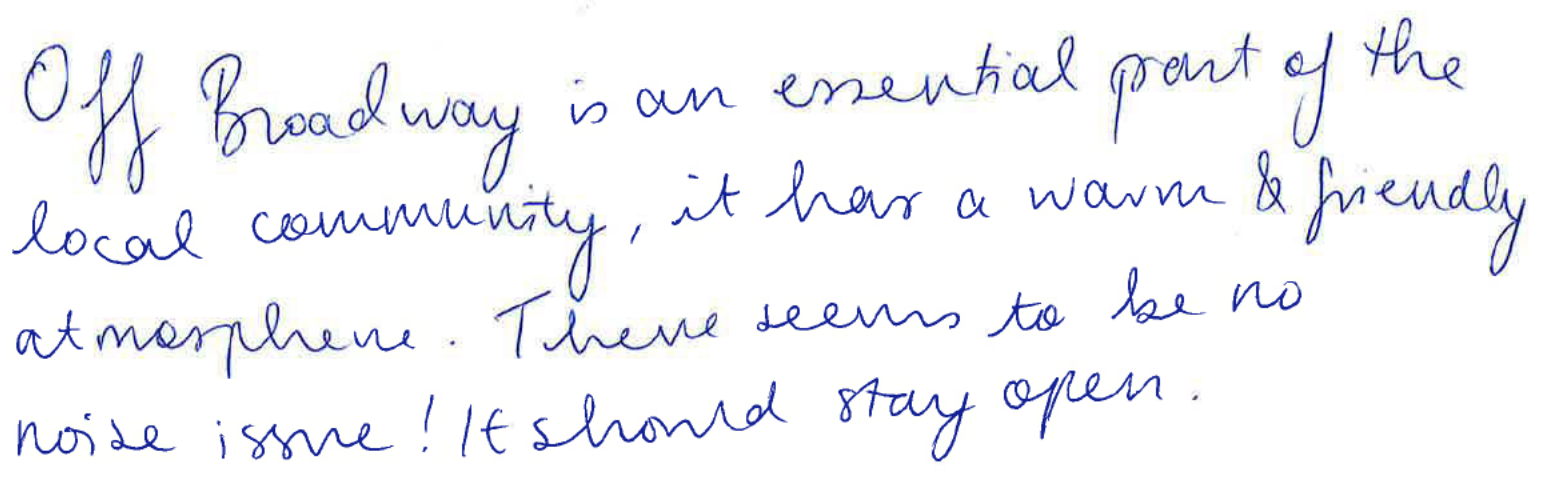 Off Broadway is an essential part of the
local community, it has a warm & friendly
atmosphere. There seems to be no
noise issue! It should stay open.